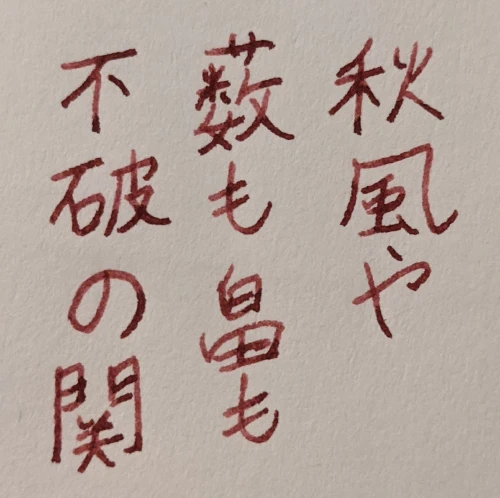 秋風や
薮も畠も
不破の関